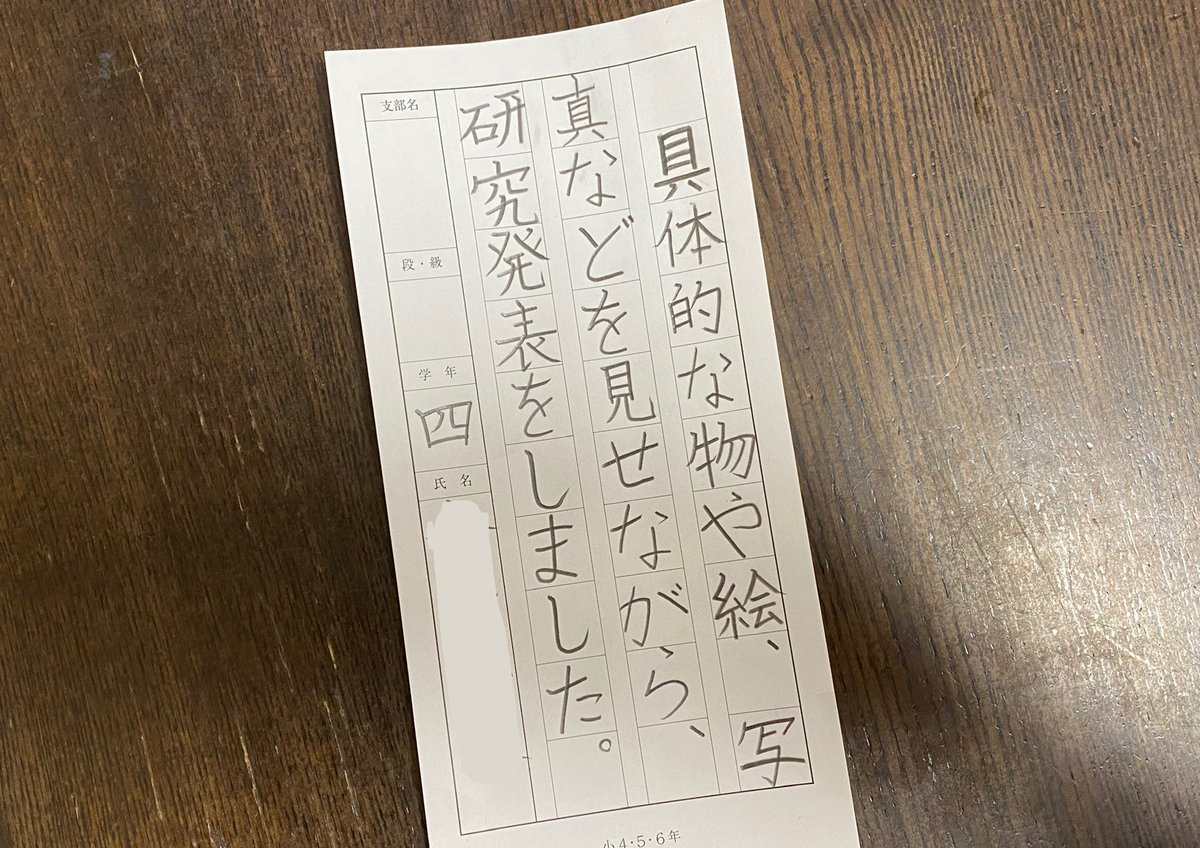 具体的な物や絵、写
真などを見せながら、
研究発表をしました。
支部名
段・級
学年
四
氏名
小4・5・6年